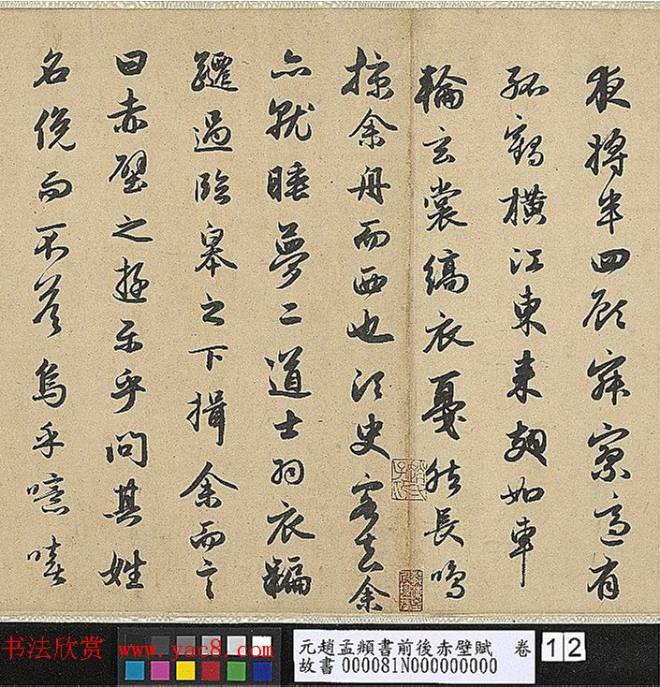 夜將半四顧寂寥適有
孤鶴橫江東來翅如車
輪玄裳縞衣戛然長鳴
掠余舟而西也須臾客去余
亦就睡夢二道士羽衣蹁
躚過臨皋之下揖余而言
曰赤壁之遊樂乎問其姓
名俛而不答烏乎噫嘻
书法欣赏
www.yac8.com
元趙孟頫書前後赤壁賦 卷 12
故書 000081N000000000